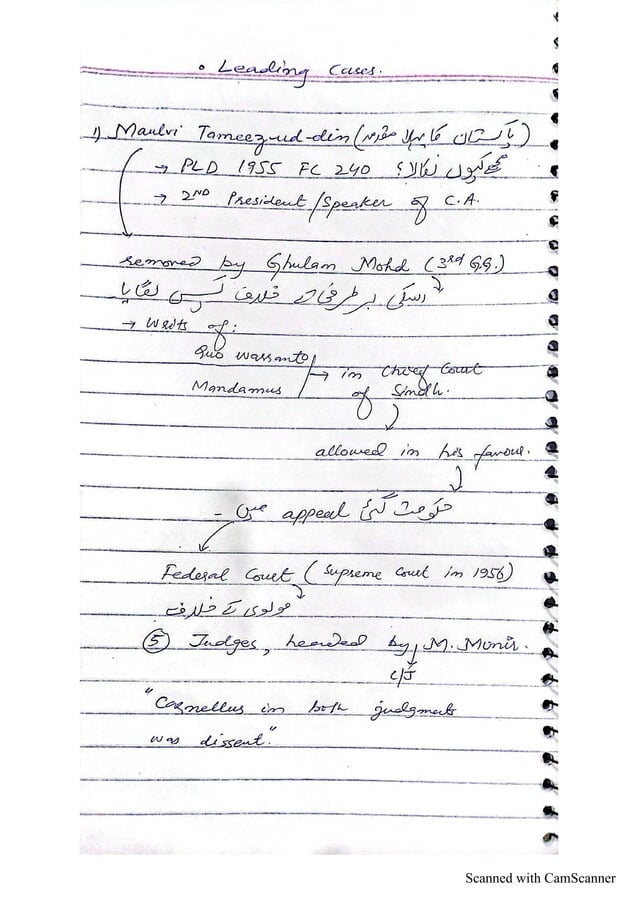 • Leading Cases.
1) Maulvi Tameez-ud-din (پاکستان کا پہلا مقدمہ)
→ PLD 1955 FC 240 مجھے کیوں نکالا؟
→ 2ND President/Speaker of C.A.
removed by Ghulam Mohd (3rd G.G.)
اسکی برطرفی کے خلاف کیس لگایا
→ Writs of:
Quo warranto
Mandamus → in Chief Court of Sindh.
allowed in his favour.
حکومت گئی appeal میں -
Federal Court (Supreme Court in 1956)
مولوی کے خلاف
5 Judges, headed by M. Munir.
C/J
"Cornellus in both judgments
was dissent."
Scanned with CamScanner